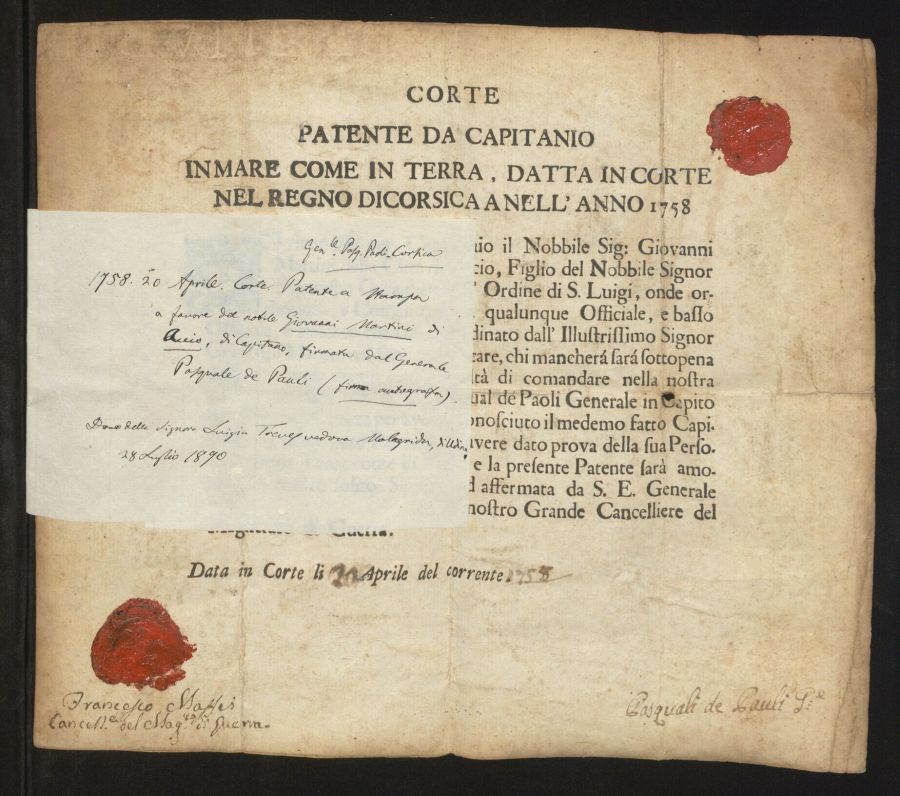 CORTE
PATENTE DA CAPITANIO
IN MARE COME IN TERRA, DATTA IN CORTE
NEL REGNO DI CORSICA A NELL' ANNO 1758
nio il Nobbile Sig: Giovanni
cio, Figlio del Nobbile Signor
' Ordine di S. Luigi, onde or-
qualunque Officiale, e baſſo
dinato dall' Illuſtriſſimo Signor
care, chi mancherá ſará ſottopena
tá di comandare nella noſtra
ual de Paoli Generale in Capito
onoſciuto il medemo fatto Capi-
vere dato prova della ſua Perſo-
e la preſente Patente ſará amo-
d affermata da S. E. Generale
noſtro Grande Cancelliere del
Magiſtrato di Guerra.
Data in Corte li 20 Aprile del corrente. 1758
Genle. Pasq. Paoli-Corsica
1758. 20 Aprile. Corte. Patente a stampa
a favore del nobile Giovanni Martini di
Accio, di Capitano, firmata dal Generale
Pasquale de Pauli (firma autografa).
Dono della Signora Luigia Treves vedova
28 Luglio 1890
Francesco Massei
Cancelle. del Mag.to di guerra.
Pasquali de Pauli